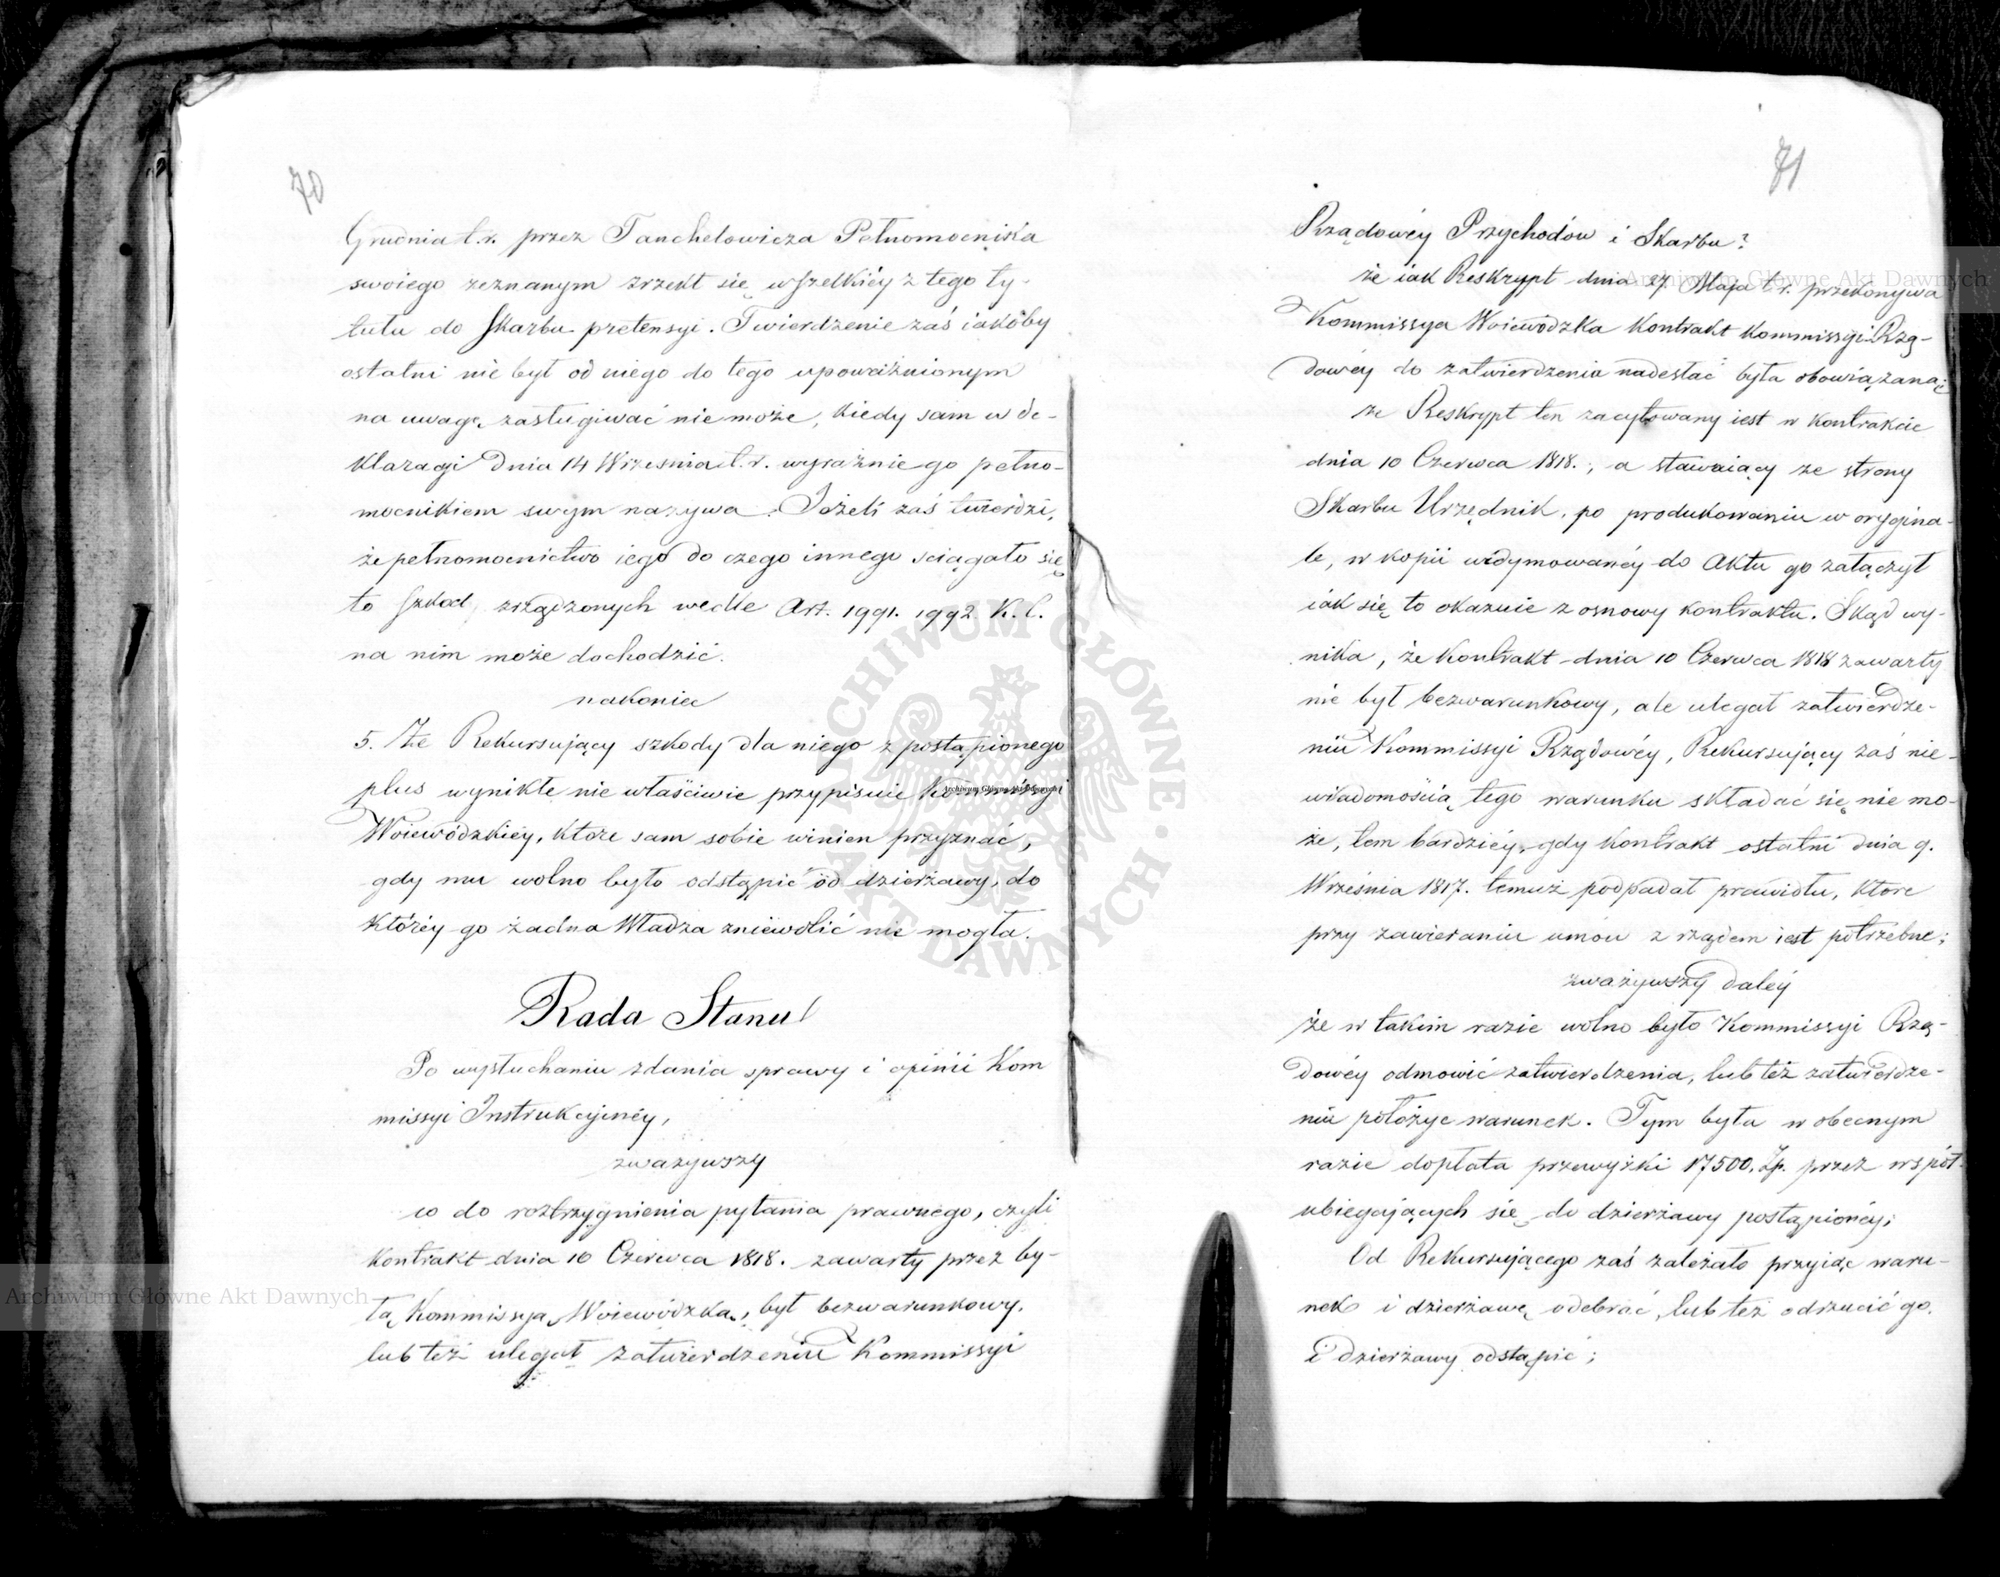 70
Grudnia t.r. przez Tanchelowicza Pełnomocnika
swoiego zeznanym zrzekł się wszelkiéy z tego ty-
tułu do Skarbu pretensyi. Twierdzenie zaś iakoby
ostatni nie był od niego do tego upoważnionym
na uwagę zasługiwać nie może, kiedy sam w de-
klaracyi dnia 14 Września t.r. wyraźnie go pełno-
mocnikiem swym nazywa. Jeżeli zaś twierdzi,
że pełnomocnictwo iego do czego innego sciągało się
to szkod zrządzonych wedle Art. 1991. 1992 K.C.
na nim może dochodzić.
nakoniec
5. Że Rekursujący szkody dla niego z postąpionego
plus wynikłe nie właściwie przypisuie Kommissyi
Woiewódzkiéy, które sam sobie winien przyznać,
gdy mu wolno było odstąpić od dzierżawy, do
któréy go żadna Władza zniewolić nie mogła.
Rada Stanu
Po wysłuchaniu zdania sprawy i opinii Kom
missyi Instrukcyjnéy,
zważywszy
co do rozstrzygnienia pytania prawnego, czyli
kontrakt dnia 10 Czerwca 1818. zawarty przez by-
łą Kommissyą Woiewódzką, był bezwarunkowy,
lub też ulegał zatwierdzeniu Kommissyi
71
Rządowéy Przychodów i Skarbu?
że iak Reskrypt dnia 27 Maja t.r. przekonywa
Kommissya Woiewódzka kontrakt Kommissyi Rzą-
dowéy do zatwierdzenia nadesłać była obowiązaną;
że Reskrypt ten zacytowany iest w kontrakcie
dnia 10 Czerwca 1818., a stawaiący ze strony
Skarbu Urzędnik, po produkowaniu w orygina-
le, w kopii widymowanéy do Aktu go załączył
iak się to okazuie z osnowy kontraktu. Skąd wy-
nika, że kontrakt dnia 10 Czerwca 1818 zawarty
nie był bezwarunkowy, ale ulegał zatwierdze-
niu Kommissyi Rządowéy, Rekursujący zaś nie-
wiadomością tego warunku składać się nie mo-
że, tem bardziéy, gdy kontrakt ostatni dnia 9.
Września 1817. temuż podpadał prawidłu, które
przy zawieraniu umów z rządem iest potrzebne;
zważywszy daléy
że w takim razie wolno było Kommissyi Rzą-
dowéy odmówić zatwierdzenia, lub też zatwierdze-
niu położyć warunek. Tym była w obecnym
razie dopłata przewyżki 17500. Złp. przez współ-
ubiegających się do dzierżawy postąpionéy;
Od Rekursującego zaś zależało przyiąć waru-
nek i dzierżawę odebrać, lub też odrzucić go.
i dzierżawy odstąpić;
Archiwum Główne Akt Dawnych
Archiwum Główne Akt Dawnych
Archiwum Główne Akt Dawnych
ARCHIWUM GŁÓWNE
AKT DAWNYCH